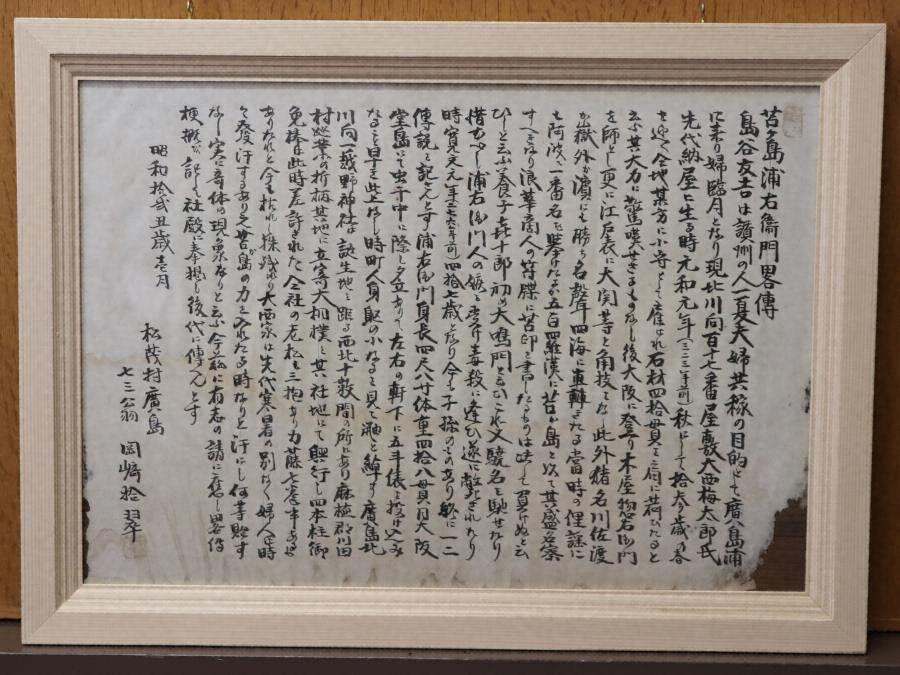 苫島浦右衞門畧傳
島谷友吉は讃州の人夏夫婦共稼の目的にて廣島浦
に来り婦臨月となり現北川向百十七番屋敷大西梅太郎氏
先代納屋に生る時元和元年(三二三年前)秋にして拾参歳の春
を迎へ今地某方に小守として雇はれ石材四拾貫を肩に荷ひたると
云ふ其大力に驚嘆せざるものなし後大阪に登り木屋惣右衛門
を師とし更に江戸表に大関等と角技をなし此外猪名川佐渡
か嶽外か濱にも勝ち名聲四海に直轉きたる當時の俚謡に
も阿波の一番名を挙げたか五百羅漢に苫か島と以て其盛名察
すへきなり浪華商人の符牒に苫印と書したるものは決して負けぬと云
ひしと云ふ養子七十郎初め大鳴門と云ひこれ又驍名を馳せたり
惜むべし浦右衛門人の嫉を受け毒殺に逢ひ遂に斃されたり
時寛文元年(二七六年前)四拾七歳となり今も子孫のもの
傳説を記さんとす浦右衛門身長四尺八寸体重四拾八貫目大阪
堂島にて虫干中に際し夕立ありて左右の軒下に五斗俵を投け込み
なること早き此上なし時町人身躯の小なるを見て
川向へ越野神社は誕生地を距る西北十数間の所にあり麻植郡川田
村巡業の折柄其地に立寄大相撲を其い社地にて興行し四本柱御
免棒は此時差許されたり今社の老松も三抱あり
ありたれと今も枯れし株残れり大西家は先代寒暑の別なく婦人は時
々發汗するあり之苫島の力を入れたる時なりと汗にし何等散す
なし実に奇体の現象なりと云ふ今茲に有志の請に應し畧傳
梗概を記して社殿に奉掲し後代に傳へんとす
昭和拾弐丑歳壱月
松茂村廣島
七三翁 岡﨑拾翠